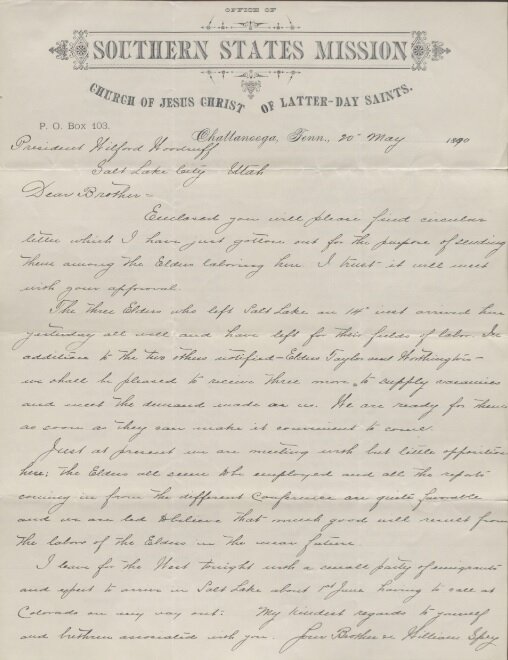 OFFICE OF
SOUTHERN STATES MISSION
CHURCH OF JESUS CHRIST OF LATTER-DAY SAINTS.
P. O. Box 103.
Chattanooga, Tenn., 20 May 1890
President Wilford Woodruff
Salt Lake City Utah
Dear Brother-
Enclosed you will please find circular
letter which I have just gotten out for the purpose of sending
them among the Elders laboring here. I trust it will meet
with your approval.
The three Elders who left Salt Lake on 14" inst arrived here
yesterday all well and have left for their fields of labor. In
addition to the two others notified - Elders Taylor and Worthington -
we shall be pleased to receive three more to supply vacancies
and meet the demand made on us. We are ready for them
as soon as they can make it convenient to come.
Just at present we are meeting with but little opposition
here; the Elders all seem to be employed and all the reports
coming in from the different Conference are quite favorable
and we are led to believe that much good will result from
the labors of the Elders in the near future.
I leave for the West tonight with a small party of emigrants
and expect to arrive in Salt Lake about 1st June having to call at
Colorado on my way out. My kindest regards to yourself
and brethren associated with you. Your Brother &c William Spry